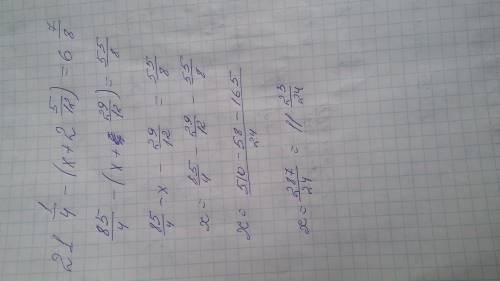 21 1/4 - (x + 2 5/12) = 6 7/8
85/4 - (x + 29/12) = 55/8
85/4 - x - 29/12 = 55/8
x = 85/4 - 29/12 - 55/8
x = 510 - 58 - 165/24
x = 287/24 = 11 23/24